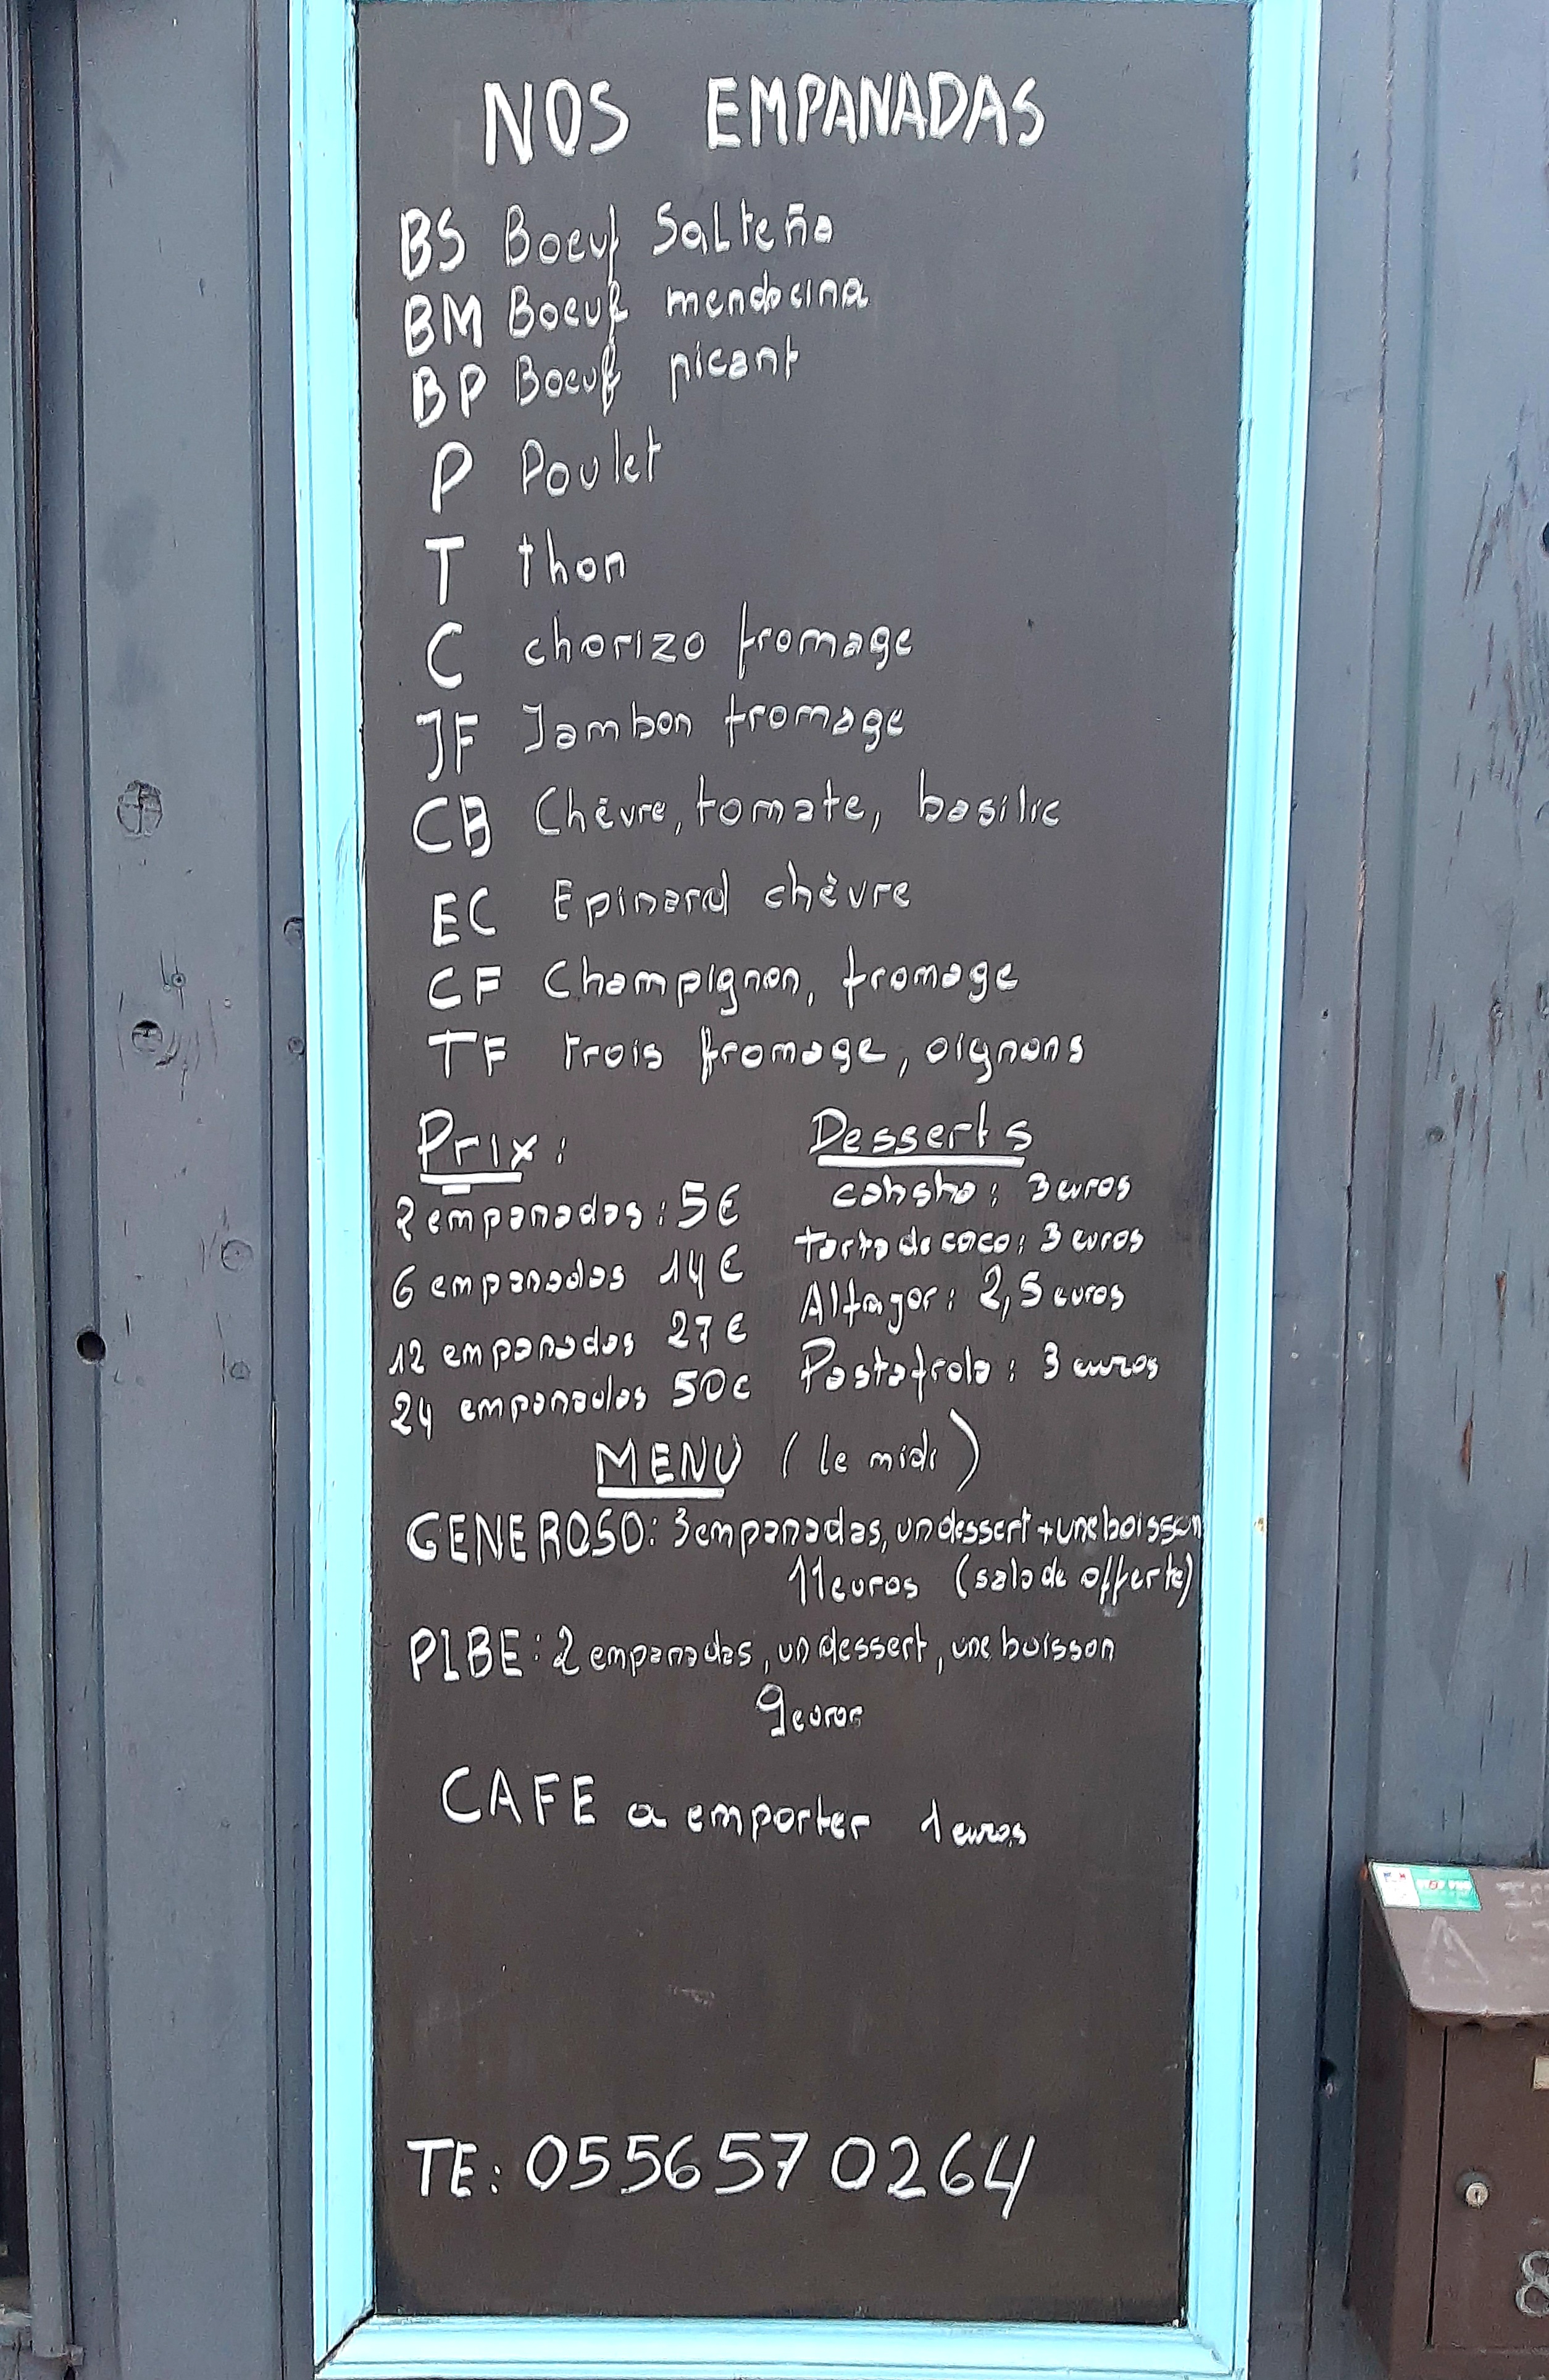 NOS EMPANADAS
BS Boeuf Salteña
BM Boeuf mendocina
BP Boeuf picant
P Poulet
T thon
C chorizo fromage
JF Jambon fromage
CB Chèvre, tomate, basilic
EC Epinard chèvre
CF Champignon, fromage
TF trois fromage, oignons
Prix:
2 empanadas: 5€
6 empanadas 14€
12 empanadas 27€
24 empanadas 50€
Desserts
: 3 euros
torta de coco: 3 euros
Alfajor: 2,5 euros
Pastafrola: 3 euros
MENU (le midi)
GENEROSO: 3 empanadas, un dessert + une boisson
11 euros (salade offerte)
PIBE: 2 empanadas, un dessert, une boisson
9 euros
CAFE a emporter 1 euros
TE: 0556570264
8